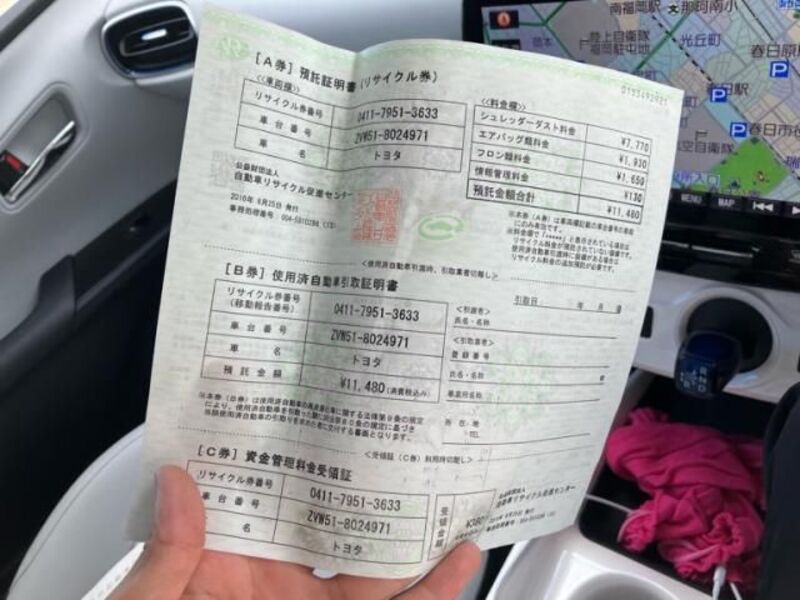 0153492921
[A券] 預託証明書 (リサイクル券)
<<車両欄>>
リサイクル券番号 0411-7951-3633
車台番号 ZVW51-8024971
車名 トヨタ
<<料金欄>>
シュレッダーダスト料金 ¥7,770
エアバッグ類料金 ¥1,930
フロン類料金 ¥1,650
情報管理料金 ¥130
預託金額合計 ¥11,480
公益財団法人
自動車リサイクル促進センター
2016年 6月25日 発行
<使用済自動車引渡時、引取業者切離し>
[B券] 使用済自動車引取証明書
リサイクル券番号
(移動報告番号) 0411-7951-3633
車台番号 ZVW51-8024971
車名 トヨタ
預託金額 ¥11,480 (消費税込み)
引取日 年 月 日
<引渡者>
氏名・名称
<引取業者>
登録番号
氏名・名称
事業所名称
所在地
TEL
<受領証 (C券) 利用時切離し>
[C券] 資金管理料金受領証
リサイクル券番号 0411-7951-3633
車台番号 ZVW51-8024971
車名 トヨタ
受領金額 ¥380
公益財団法人
自動車リサイクル促進センター
南福岡駅
那珂南小
陸上自衛隊
福岡駐屯地
光丘町
春日原
春日駅
春日市役
MENU MAP
R
N
D
B